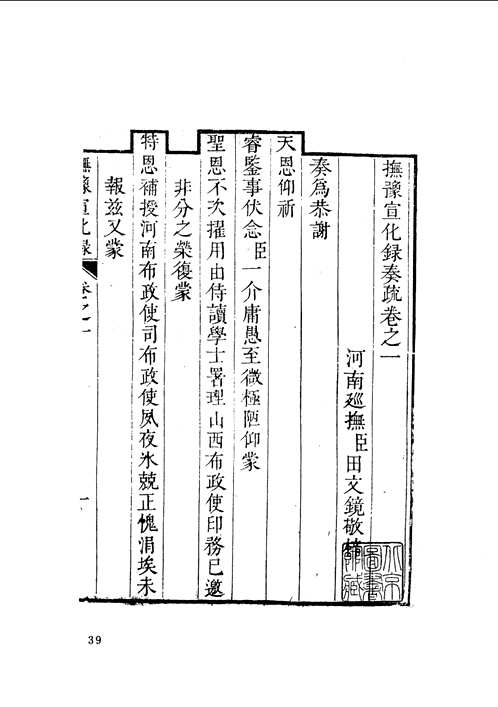 撫豫宣化録奏疏卷之一
河南廵撫臣田文鏡敬
奏爲恭謝
天恩仰祈
睿鑒事伏念臣一介庸愚至微極陋仰蒙
聖恩不次擢用由侍讀學士署理山西布政使印務已邀
非分之榮復蒙
特恩補授河南布政使司布政使夙夜氷兢正愧涓埃未
報兹又蒙
撫豫宣化録
卷之一
一
39